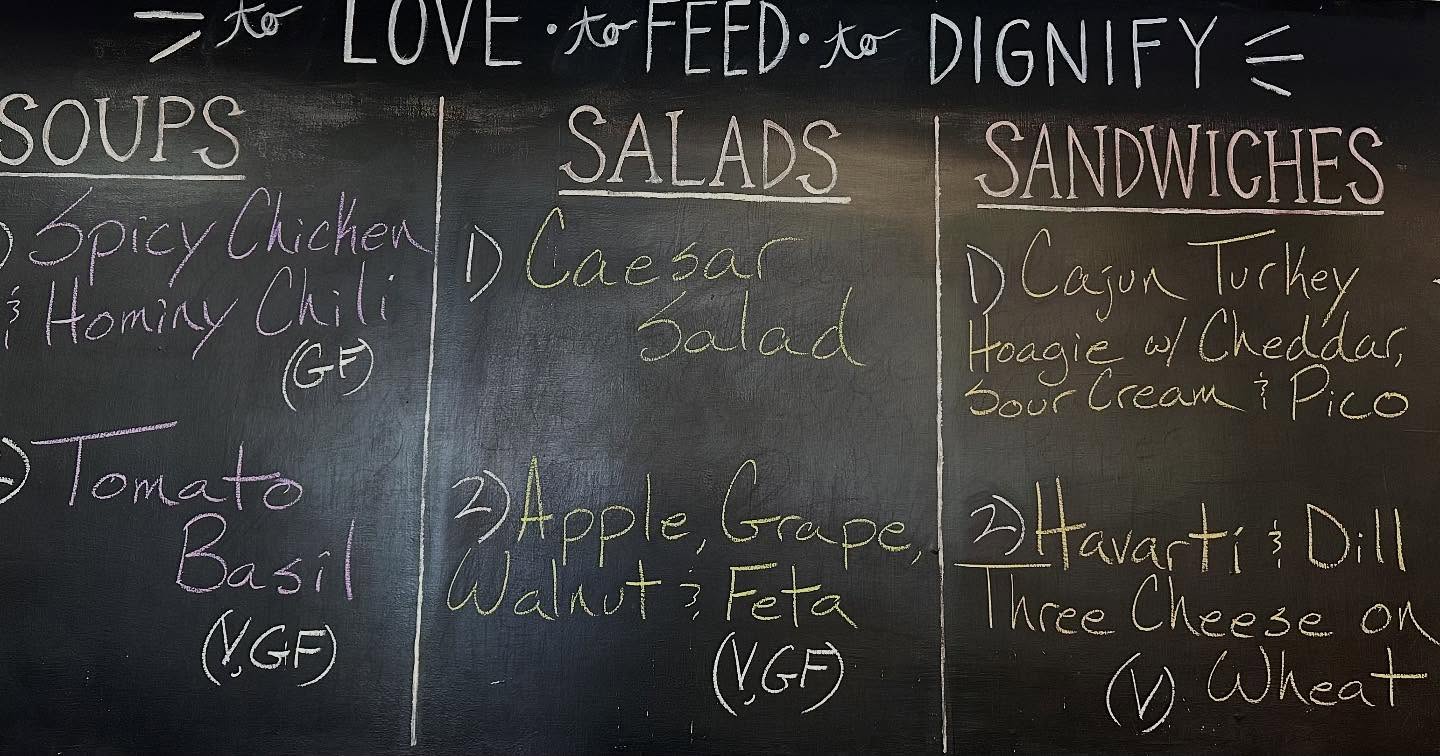 to LOVE · to FEED · to DIGNIFY
SOUPS
Spicy Chicken
& Hominy Chili
(GF)
2) Tomato
Basil
(V, GF)
SALADS
1) Caesar
Salad
2) Apple, Grape,
Walnut & Feta
(V, GF)
SANDWICHES
1) Cajun Turkey
Hoagie w/ Cheddar,
Sour Cream & Pico
2) Havarti & Dill
Three Cheese on
(V) Wheat